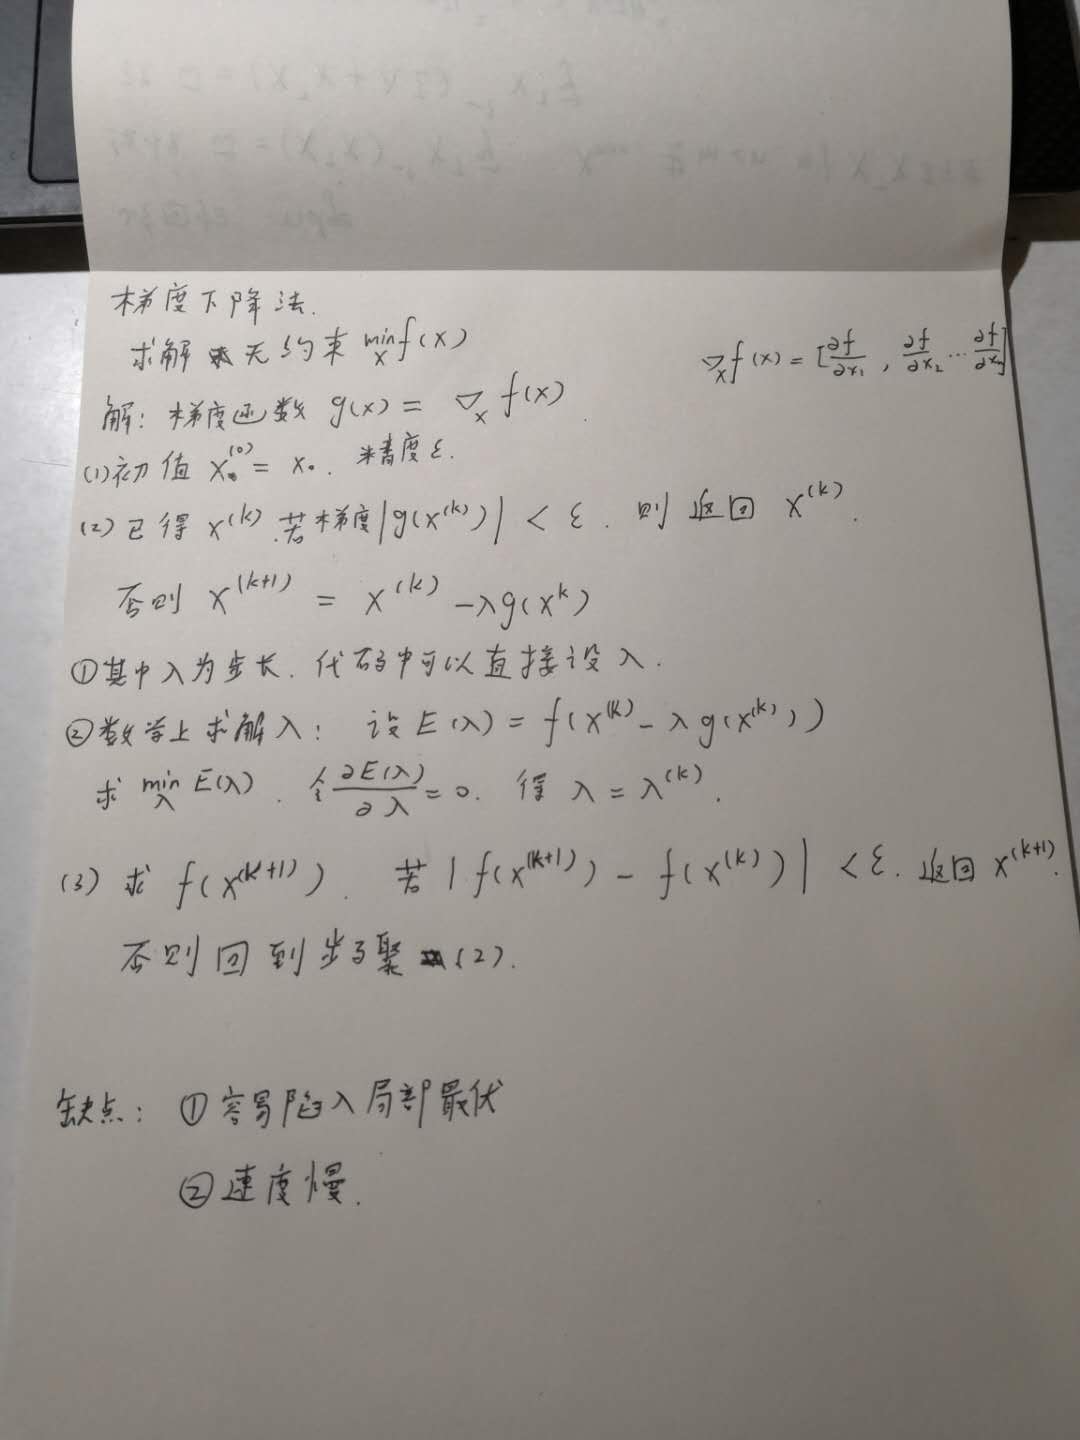 梯度下降法.
求解 无约束 min_x f(x)
∇_x f(x) = [∂f/∂x₁ , ∂f/∂x₂ … ∂f/∂xₙ]
解: 梯度函数 g(x) = ∇_x f(x)
(1) 初值 x^(0) = x₀. 精度 ε.
(2) 已得 x^(k). 若梯度|g(x^(k))| < ε. 则 返回 x^(k).
否则 x^(k+1) = x^(k) - λg(x^k)
①其中λ为步长. 代码中可以直接设λ.
②数学上求解λ: 设 E(λ) = f(x^(k) - λg(x^(k)))
求 min_λ E(λ). 令 ∂E(λ)/∂λ = 0. 得 λ = λ^(k).
(3) 求 f(x^(k+1)). 若 |f(x^(k+1)) - f(x^(k))| < ε. 返回 x^(k+1).
否则回到步骤 (2).
缺点: ①容易陷入局部最优
②速度慢.